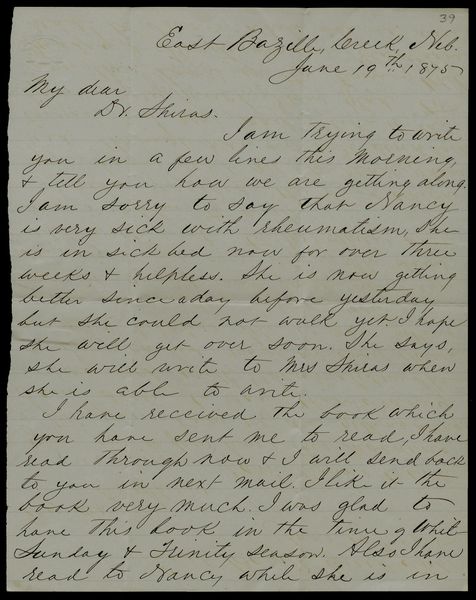 39
East Bazille, Creek, Neb.
June 19th 1875
My dear
Dr. Shiras.
I am trying to write
you in a few lines this Morning,
& tell you how we are getting along.
I am sorry to say that Nancy
is very sick with rheumatism, she
is in sick bed now for over three
weeks & helpless. She is now getting
better since a day before yesterday
but she could not walk yet. I hope
she will get over soon. She says,
she will write to Mrs Shiras when
she is able to write.
I have received the book which
you have sent me to read, I have
read through now & I will send back
to you in next mail. I like it the
book very much. I was glad to
have this book in the time of Whit-
Sunday & Trinity season. Also I have
read to Nancy while she is in